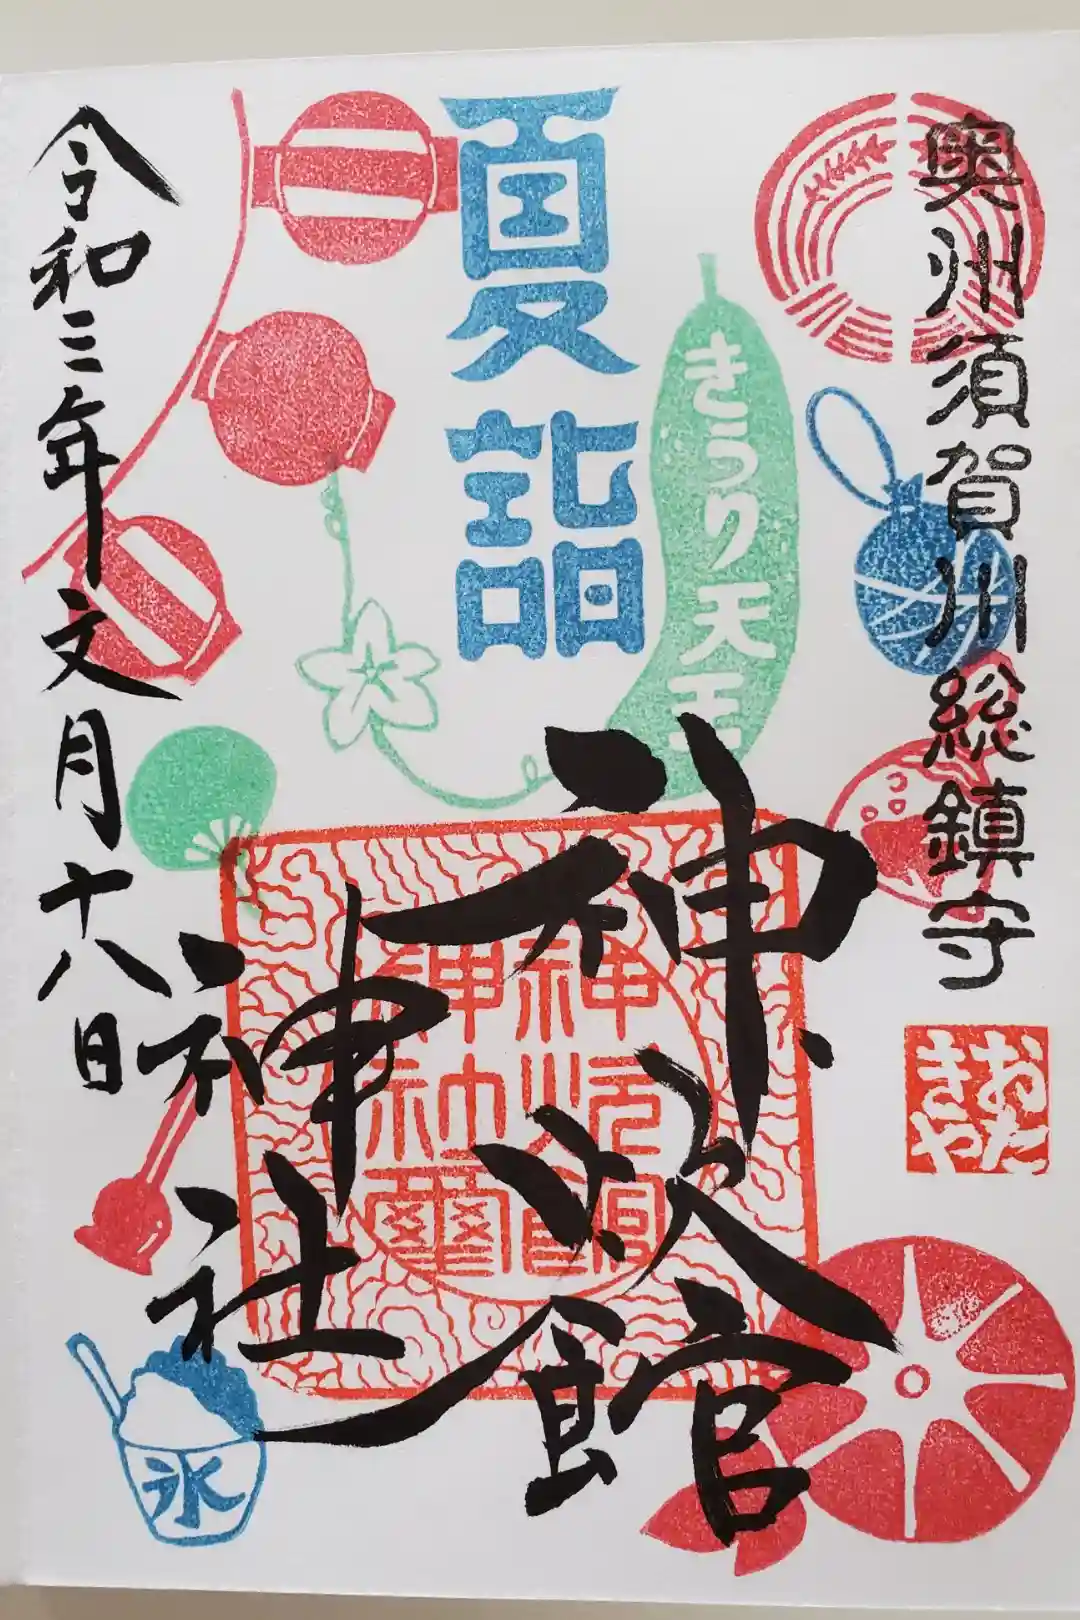 奥州須賀川総鎮守
おた
きや
きうり天王
夏詣
神炊館
神社
神炊館
神社璽
令和三年文月十八日
氷